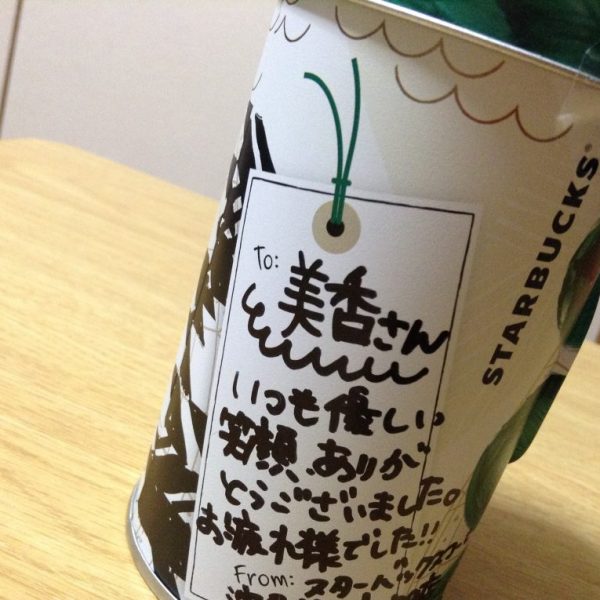 STARBUCKS®
To: 美香さん
いつも優しい
笑顔、ありが
とうございました。
お疲れ様でした!!
From: スターバックスコー